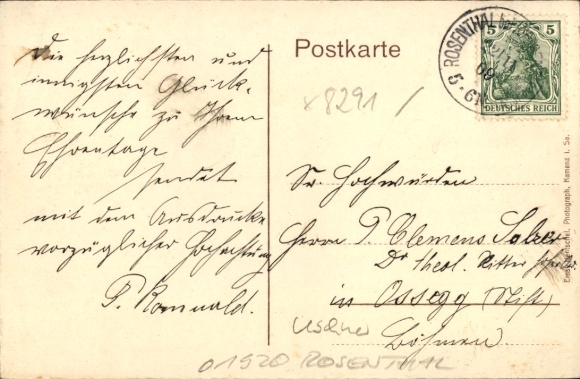 Die herzlichsten und
innigsten Glück-
wünsche zu Ihrem
Ehrentage
sendet
mit dem Ausdrucke
vorzüglicher Hochachtung
P. Romuald.
Postkarte
x8291
ROSENTHAL
5-6N
5 5
DEUTSCHES REICH
Sr. Hochwürden
Herrn P. Clemens
Dr theol. Ritter
in Ossegg (Stift)
Böhmen.
01920 ROSENTHAL
Photograph, Kamenz i. Sa.